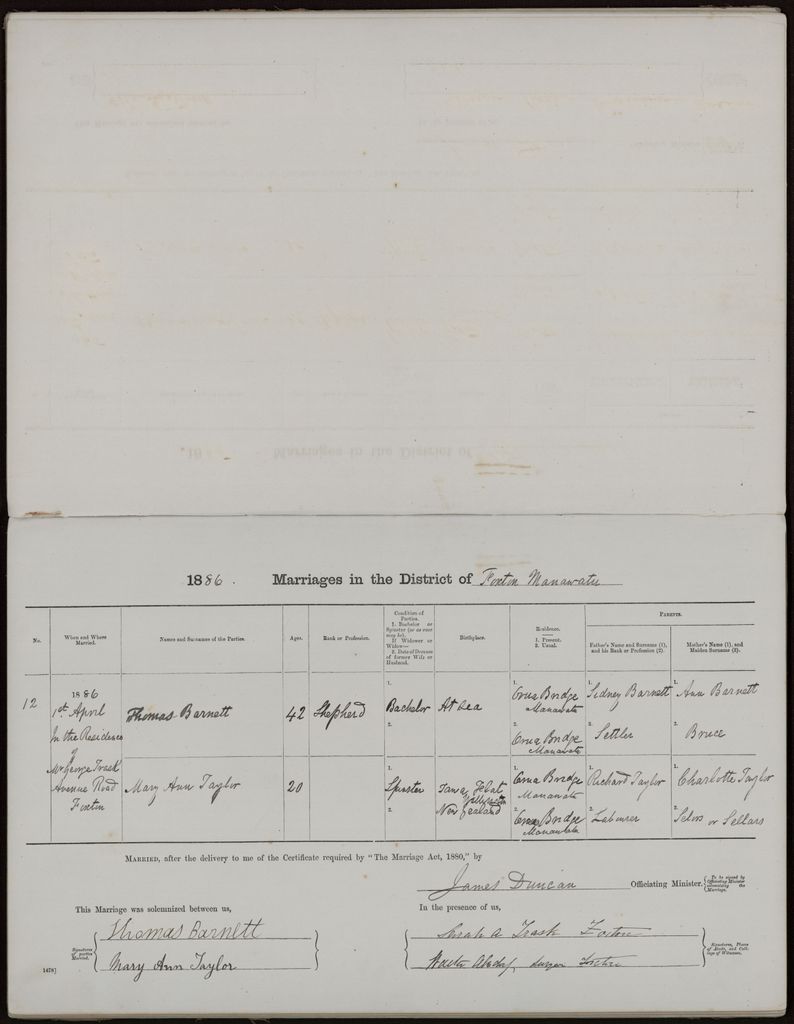 1886. Marriages in the District of Foxton Manawatu
No.
When and Where Married.
Names and Surnames of the Parties.
Ages.
Rank or Profession.
Condition of Parties.
1. Bachelor or Spinster (or as case may be).
If Widower or Widow—
2. Date of Decease of former Wife or Husband.
Birthplace.
Residence.
1. Present.
2. Usual.
PARENTS.
Father's Name and Surname (1), and his Rank or Profession (2).
Mother's Name (1), and Maiden Surname (2).
12
1886
1st April
In the Residence
of
Mr George Trask
Avenue Road
Foxton
Thomas Barnett
42
Shepherd
1.
Bachelor
2.
At Sea
1.
Bridge
Manawatu
2.
Bridge
Manawatu
1.
Sidney Barnett
2.
Settler
1.
Ann Barnett
2.
Bruce
Mary Ann Taylor
20
1.
Spinster
2.
New Zealand
1.
Bridge
Manawatu
2.
Bridge
Manawatu
1.
Richard Taylor
2.
Labourer
1.
Charlotte Taylor
2.
or Sellars
MARRIED, after the delivery to me of the Certificate required by "The Marriage Act, 1880," by
James Duncan Officiating Minister. {To be signed by Officiating Minister solemnizing the Marriage.
This Marriage was solemnized between us,
Signatures of parties Married.
Thomas Barnett
Mary Ann Taylor
In the presence of us,
Sarah A Trask Foxton
Foxton
Signatures, Places of Abode, and Callings of Witnesses.
1478]